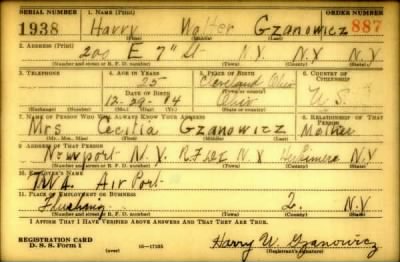 SERIAL NUMBER 1. NAME (Print) ORDER NUMBER
1938 Harry Walter Gzanowicz 887
(First) (Middle) (Last)
2. ADDRESS (Print)
200 E 7" St N.Y. N.Y. N.Y
(Number and street or R. F. D. number) (Town) (County) (State)
3. TELEPHONE 4. AGE IN YEARS 5. PLACE OF BIRTH 6. COUNTRY OF CITIZENSHIP
25 Cleveland Ohio
DATE OF BIRTH
12-29-14 Ohio U.S.
(Exchange) (Number) (Mo.) (Day) (Yr.) (State or country)
7. NAME OF PERSON WHO WILL ALWAYS KNOW YOUR ADDRESS 8. RELATIONSHIP OF THAT PERSON
Mrs Cecilia Gzanowicz Mother
(Mr., Mrs., Miss) (First) (Middle) (Last)
9. ADDRESS OF THAT PERSON
Newport N.Y. R.F.D. N.Y Herkimer N.Y
(Number and street or R. F. D. number) (Town) (County) (State)
10. EMPLOYER'S NAME
TWA. Air Port
11. PLACE OF EMPLOYMENT OR BUSINESS
Flushing L. N.Y
(Number and street or R. F. D. number) (Town) (County) (State)
I AFFIRM THAT I HAVE VERIFIED ABOVE ANSWERS AND THAT THEY ARE TRUE.
REGISTRATION CARD
D. S. S. Form 1 (over) 16-17105 Harry W. Gzanowicz
(Registrant's signature)